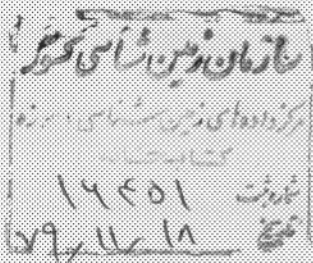 سازمان زمین شناسی کشور
مرکز داده‌های زمین شناسی
کتابخانه
شماره ثبت ۱۶۴۵۱
تاریخ ۷۹/۱۱/۱۸